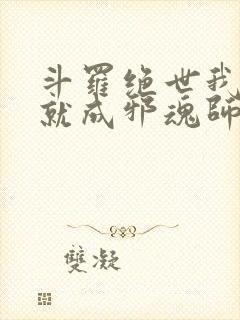 斗羅绝世我
就成邪魂師
雙凝